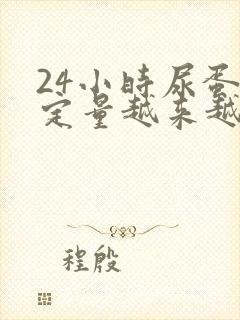 24小時尿蛋
定量越来越
程殷